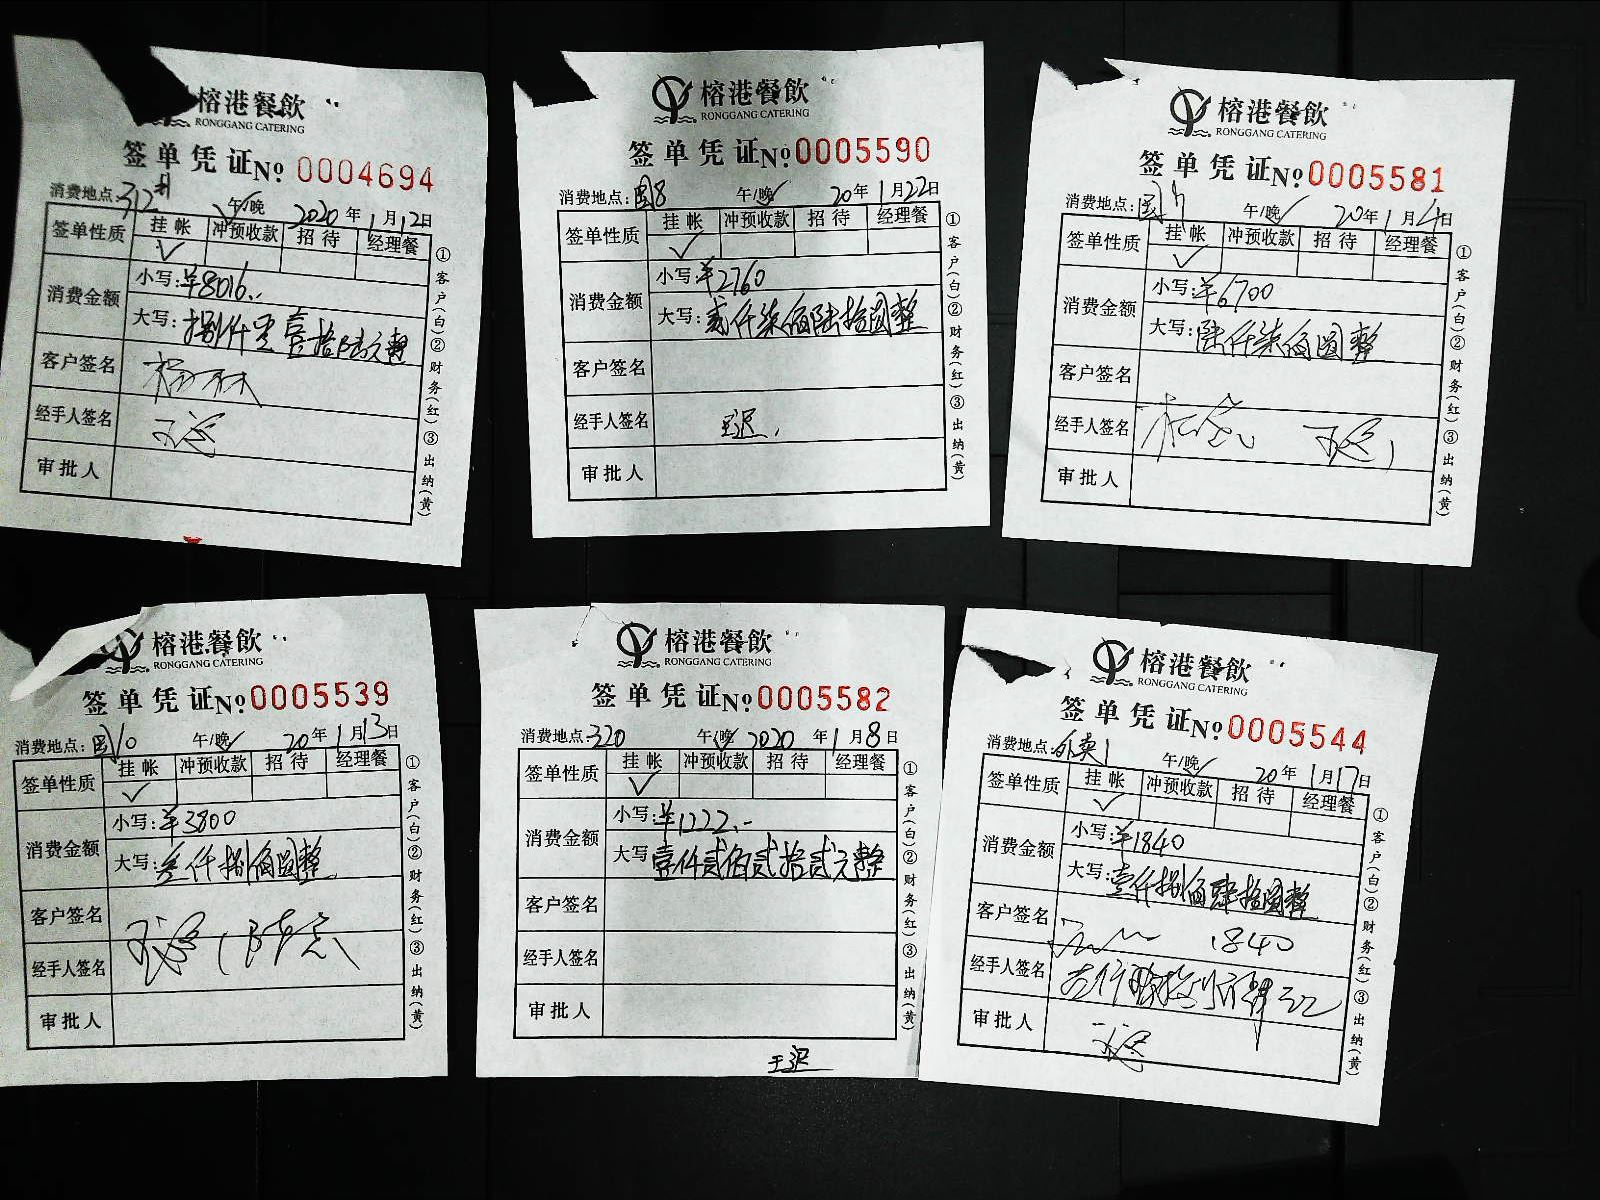 榕港餐飲
RONGGANG CATERING
签单凭证 No 0004694
消费地点:312 午/晚 2020年1月12日
签单性质 挂帐 冲预收款 招待 经理餐
消费金额 小写:¥8016.
大写:捌仟零壹拾陆元整
客户签名
经手人签名
审批人
①客户(白)②财务(红)③出纳(黄)
榕港餐飲
RONGGANG CATERING
签单凭证 No 0005590
消费地点: 午/晚 20年1月22日
签单性质 挂帐 冲预收款 招待 经理餐
消费金额 小写:¥2760
大写:贰仟柒佰陆拾圆整
客户签名
经手人签名 王迟
审批人
①客户(白)②财务(红)③出纳(黄)
榕港餐飲
RONGGANG CATERING
签单凭证 No 0005581
消费地点: 午/晚 20年1月4日
签单性质 挂帐 冲预收款 招待 经理餐
消费金额 小写:¥6700
大写:陆仟柒佰圆整
客户签名
经手人签名
审批人
①客户(白)②财务(红)③出纳(黄)
榕港餐飲
RONGGANG CATERING
签单凭证 No 0005539
消费地点: 午/晚 20年1月13日
签单性质 挂帐 冲预收款 招待 经理餐
消费金额 小写:¥3800
大写:叁仟捌佰圆整
客户签名
经手人签名
审批人
①客户(白)②财务(红)③出纳(黄)
榕港餐飲
RONGGANG CATERING
签单凭证 No 0005582
消费地点:320 午/晚 2020年1月8日
签单性质 挂帐 冲预收款 招待 经理餐
消费金额 小写:¥1222.-
大写:壹仟贰佰贰拾贰元整
客户签名
经手人签名
审批人
①客户(白)②财务(红)③出纳(黄)
王迟
榕港餐飲
RONGGANG CATERING
签单凭证 No 0005544
消费地点:外卖1 午/晚 20年1月17日
签单性质 挂帐 冲预收款 招待 经理餐
消费金额 小写:¥1840
大写:壹仟捌佰肆拾圆整
客户签名 1840
经手人签名
审批人
①客户(白)②财务(红)③出纳(黄)